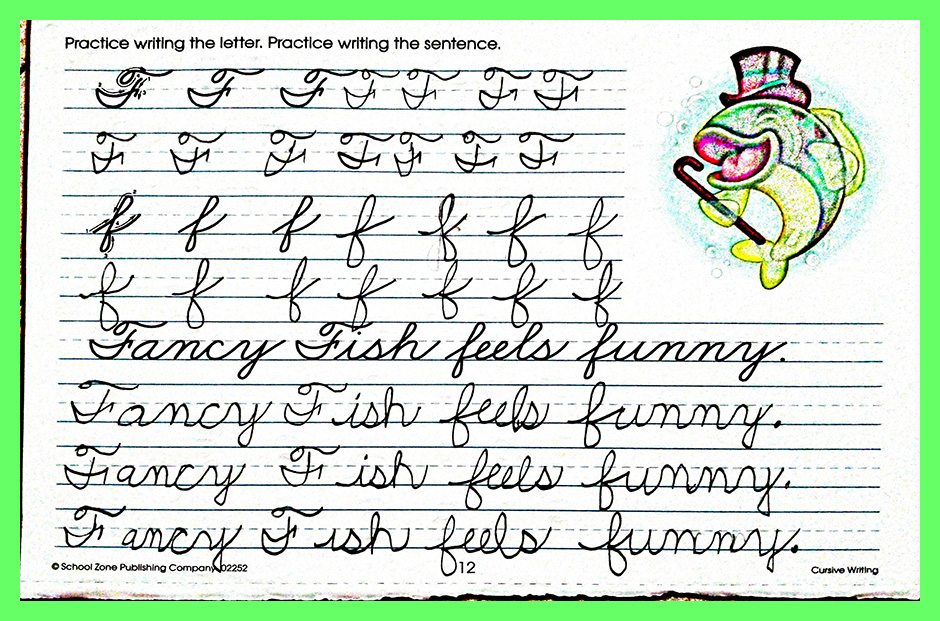 Practice writing the letter. Practice writing the sentence.
F F F F F F F
F F F F F F F
f f f f f f f
f f f f f f f
Fancy Fish feels funny.
Fancy Fish feels funny.
Fancy Fish feels funny.
Fancy Fish feels funny.
© School Zone Publishing Company 02252 12 Cursive Writing